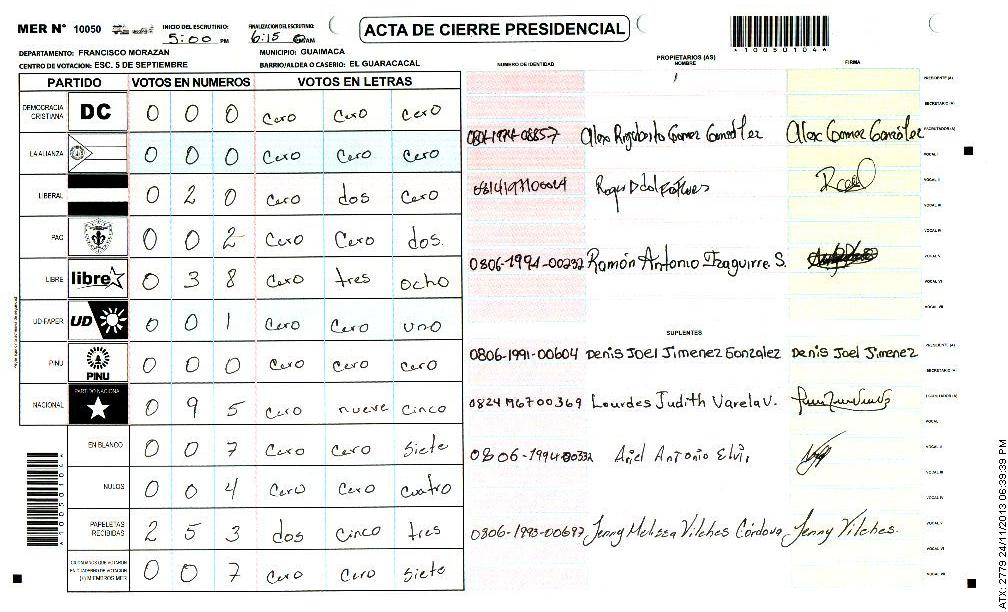 MER N° 10050
INICIO DEL ESCRUTINIO: 5:00 PM
FINALIZACION DEL ESCRUTINIO: 6:15
ACTA DE CIERRE PRESIDENCIAL
*10050104*
DEPARTAMENTO: FRANCISCO MORAZAN
MUNICIPIO: GUAIMACA
CENTRO DE VOTACION: ESC. 5 DE SEPTIEMBRE
BARRIO/ALDEA O CASERIO: EL GUARACACAL
PARTIDO VOTOS EN NUMEROS VOTOS EN LETRAS
DEMOCRACIA CRISTIANA DC 0 0 0 Cero Cero Cero
LA ALIANZA 0 0 0 Cero Cero Cero
LIBERAL 0 2 0 Cero dos Cero
PAC 0 0 2 Cero Cero dos
LIBRE libre 0 3 8 Cero tres ocho
UD-FAPER UD 0 0 1 Cero Cero uno
PINU PINU 0 0 0 Cero Cero Cero
NACIONAL PARTIDO NACIONAL 0 9 5 Cero nueve cinco
EN BLANCO 0 0 7 Cero Cero Siete
NULOS 0 0 4 Cero Cero cuatro
PAPELETAS RECIBIDAS 2 5 3 dos Cinco tres
CIUDADANOS QUE VOTARON EN CUADERNO DE VOTACION (+) MIEMBROS MER 0 0 7 Cero Cero Siete
PROPIETARIOS (AS)
NUMERO DE IDENTIDAD NOMBRE FIRMA
PRESIDENTE (A)
SECRETARIO (A)
Alex Rigoberto Gomez González Alex Gomez González ESCRUTADOR (A)
VOCAL I
VOCAL II
VOCAL III
0806-1994-00232 Ramón Antonio Izaguirre S. VOCAL V
VOCAL VI
VOCAL VII
SUPLENTES
PRESIDENTE (A)
0806-1991-00604 Denis Joel Jimenez Gonzalez Denis Joel Jimenez
SECRETARIO (A)
Lourdes Judith Varela V. ESCRUTADOR (A)
VOCAL I
Ariel Antonio VOCAL II
VOCAL III
VOCAL IV
0806-1993-00697 Jenny Melissa Vilches Córdova Jenny Vilches. VOCAL V
VOCAL VI
VOCAL VII
*10050104*
ATX: 2779 24/11/2013 06:39:39 PM